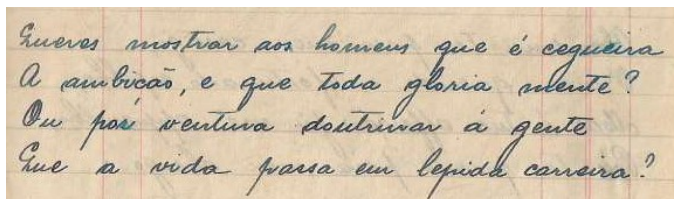 Queres mostrar aos homens que é cegueira
A ambicão, e que toda gloria mente?
Ou por ventura doutrinar á gente
Que a vida passa em lepida carreira?